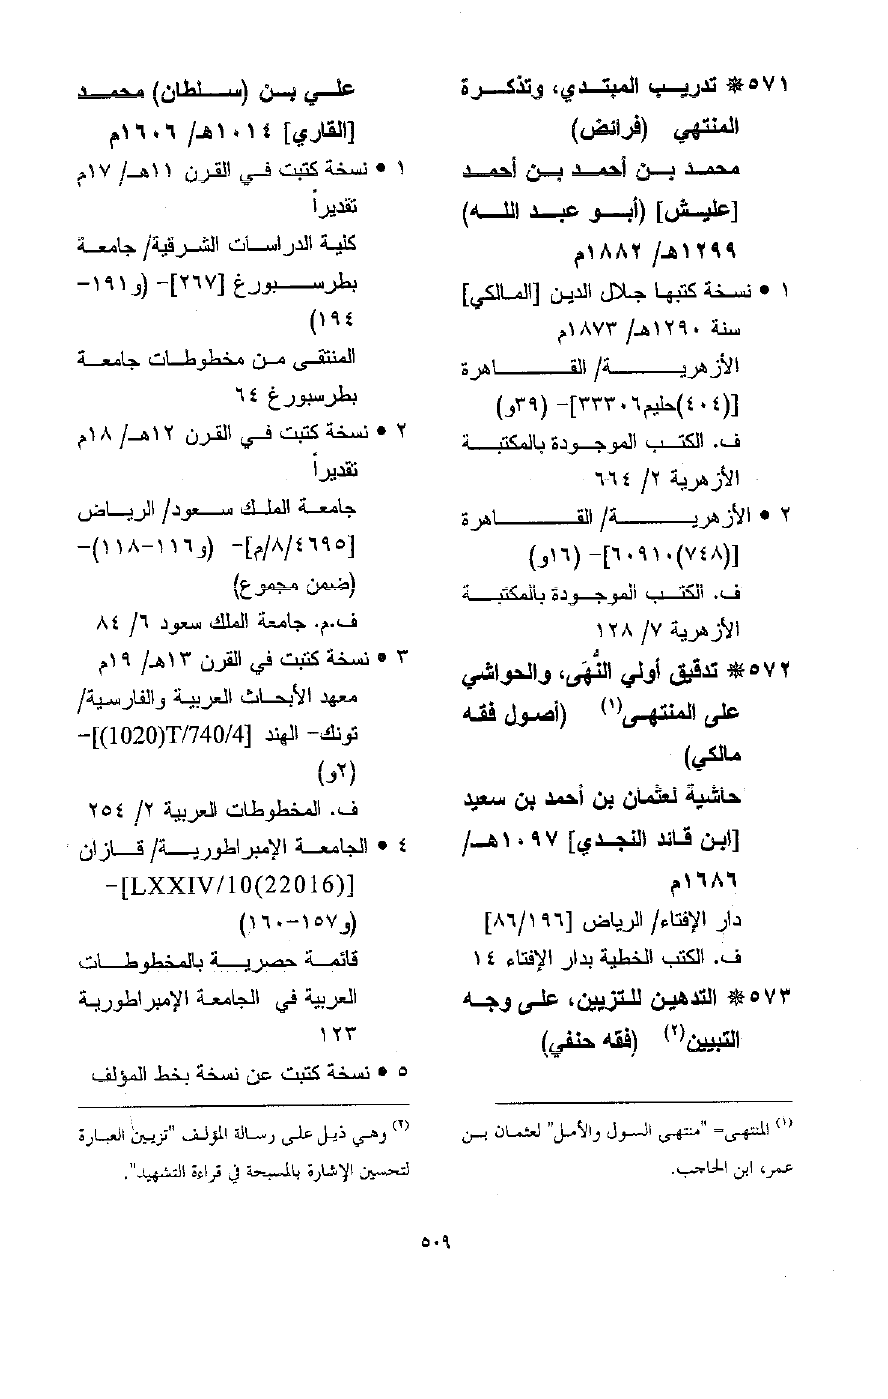 ٥٧١ * تدريب المبتدي، وتذكرة
المنتهي (فرائض)
محمد بن أحمد بن أحمد
[عليش] (أبو عبد الله)
١٢٩٩هـ/ ١٨٨٢م
١ • نسخة كتبها جلال الدين [المالكي]
سنة ١٢٩٠هـ/ ١٨٧٣م
الأزهرية/ القاهرة
[(٤٠٤)حليم٣٣٣٠٦]- (٣٩و)
ف. الكتب الموجودة بالمكتبة
الأزهرية ٢/ ٦٦٤
٢ • الأزهرية/ القاهرة
[(٧٤٨)٦٠٩١٠]- (١٦و)
ف. الكتب الموجودة بالمكتبة
الأزهرية ٧/ ١٢٨
٥٧٢ * تدقيق أولي النُّهَى، والحواشي
على المنتهى(١) (أصول فقه
مالكي)
حاشية لعثمان بن أحمد بن سعيد
[ابن قائد النجدي] ١٠٩٧هـ/
١٦٨٦م
دار الإفتاء/ الرياض [٨٦/١٩٦]
ف. الكتب الخطية بدار الإفتاء ١٤
٥٧٣ * التدهين للتزيين، على وجه
التبيين(٢) (فقه حنفي)
(١) المنتهى= "منتهى السول والأمل" لعثمان بن
عمر، ابن الحاجب.
علي بن (سلطان) محمد
[القاري] ١٠١٤هـ/ ١٦٠٦م
١ • نسخة كتبت في القرن ١١هـ/ ١٧م
تقديراً
كلية الدراسات الشرقية/ جامعة
بطرسبورغ [٢٦٧]- (و١٩١-
١٩٤)
المنتقى من مخطوطات جامعة
بطرسبورغ ٦٤
٢ • نسخة كتبت في القرن ١٢هـ/ ١٨م
تقديراً
جامعة الملك سعود/ الرياض
[٤٦٩٥/٨/م]- (و١١٦-١١٨)-
(ضمن مجموع)
ف.م. جامعة الملك سعود ٦/ ٨٤
٣ • نسخة كتبت في القرن ١٣هـ/ ١٩م
معهد الأبحاث العربية والفارسية/
تونك- الهند [T/740/4(1020)]-
(٢و)
ف. المخطوطات العربية ٢/ ٢٥٤
٤ • الجامعة الإمبراطورية/ قازان
[LXXIV/10(22016)]-
(و١٥٧-١٦٠)
قائمة حصرية بالمخطوطات
العربية في الجامعة الإمبراطورية
١٢٣
٥ • نسخة كتبت عن نسخة بخط المؤلف
(٢) وهي ذيل على رسالة المؤلف "تزيين العبارة
لتحسين الإشارة بالمسبحة في قراءة التشهيد".
٥٠٩